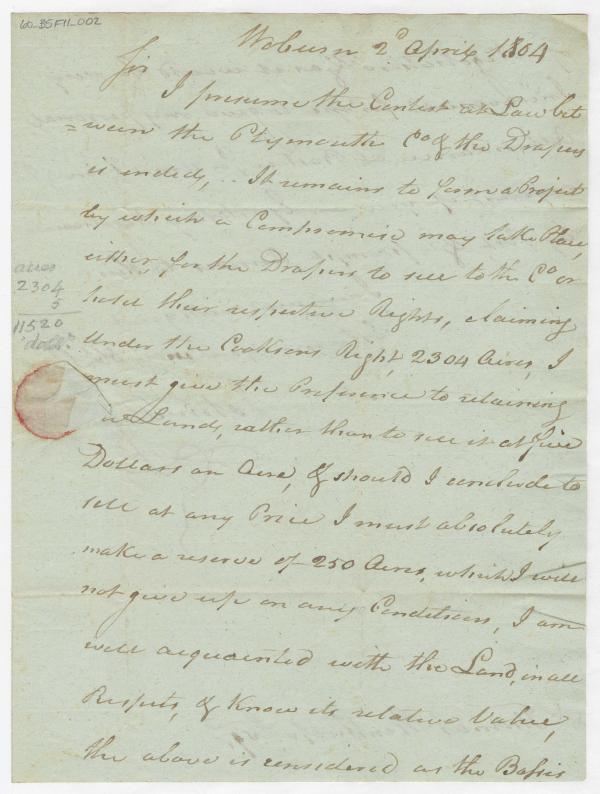 60_B5F11_002
Woburn 2d April 1804
Sir
I presume the Contest at Law bet
=ween the Plymouth Co & the Drapers
is ended, .. It remains to form a Project
by which a Compromise may take Place,
either for the Drapers to sell to the Co or
hold their respective Rights, claiming
under the Cooksons Right, 2304 Acres, I
must give the Preference to retaining
Land, rather than to sell it at five
Dollars an Acre, & should I conclude to
sell at any Price I must absolutely
make a reserve of 250 Acres, which I will
not give up on any Conditions, I am
well acquainted with the Land, in all
Respects, & Know its relative Value,
the above is considered as the Bassis
acres
2304
5
11520
"dolls"